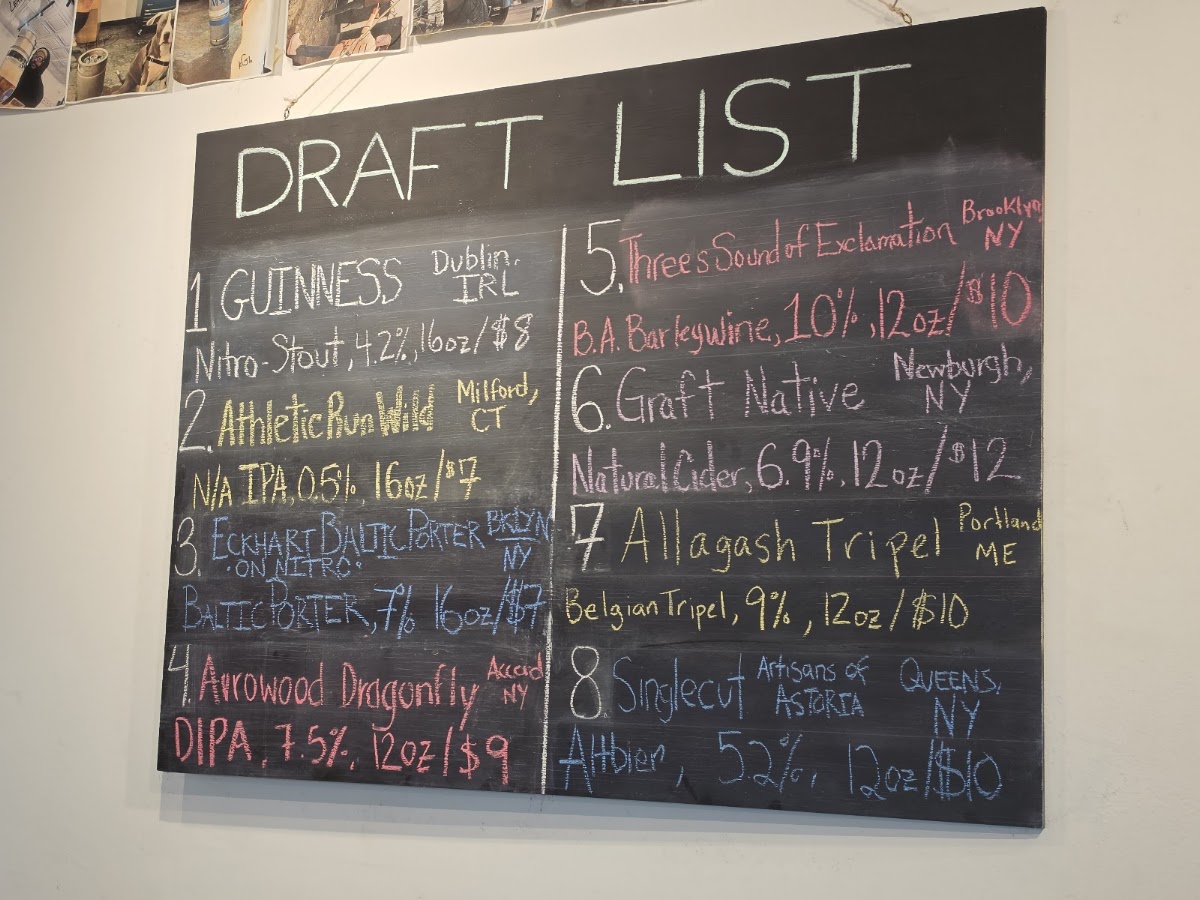 DRAFT LIST
1 GUINNESS Dublin, IRL
Nitro-Stout, 4.2%, 16oz/$8
2. Athletic Run Wild Milford, CT
N/A IPA, 0.5%, 16oz/$7
3. ECKHART BALTIC PORTER BKLYN NY
·ON NITRO·
BALTIC PORTER, 7% 16oz/$7
4 Arrowood Dragonfly Accord NY
DIPA, 7.5%, 12oz/$9
5. Threes Sound of Exclamation Brooklyn, NY
B.A. Barleywine, 10%, 12oz/$10
6. Graft Native Newburgh, NY
Natural Cider, 6.9%, 12oz/$12
7 Allagash Tripel Portland ME
Belgian Tripel, 9%, 12oz/$10
8. Singlecut Artisans of ASTORIA QUEENS, NY
Altbier, 5.2%, 12oz/$10